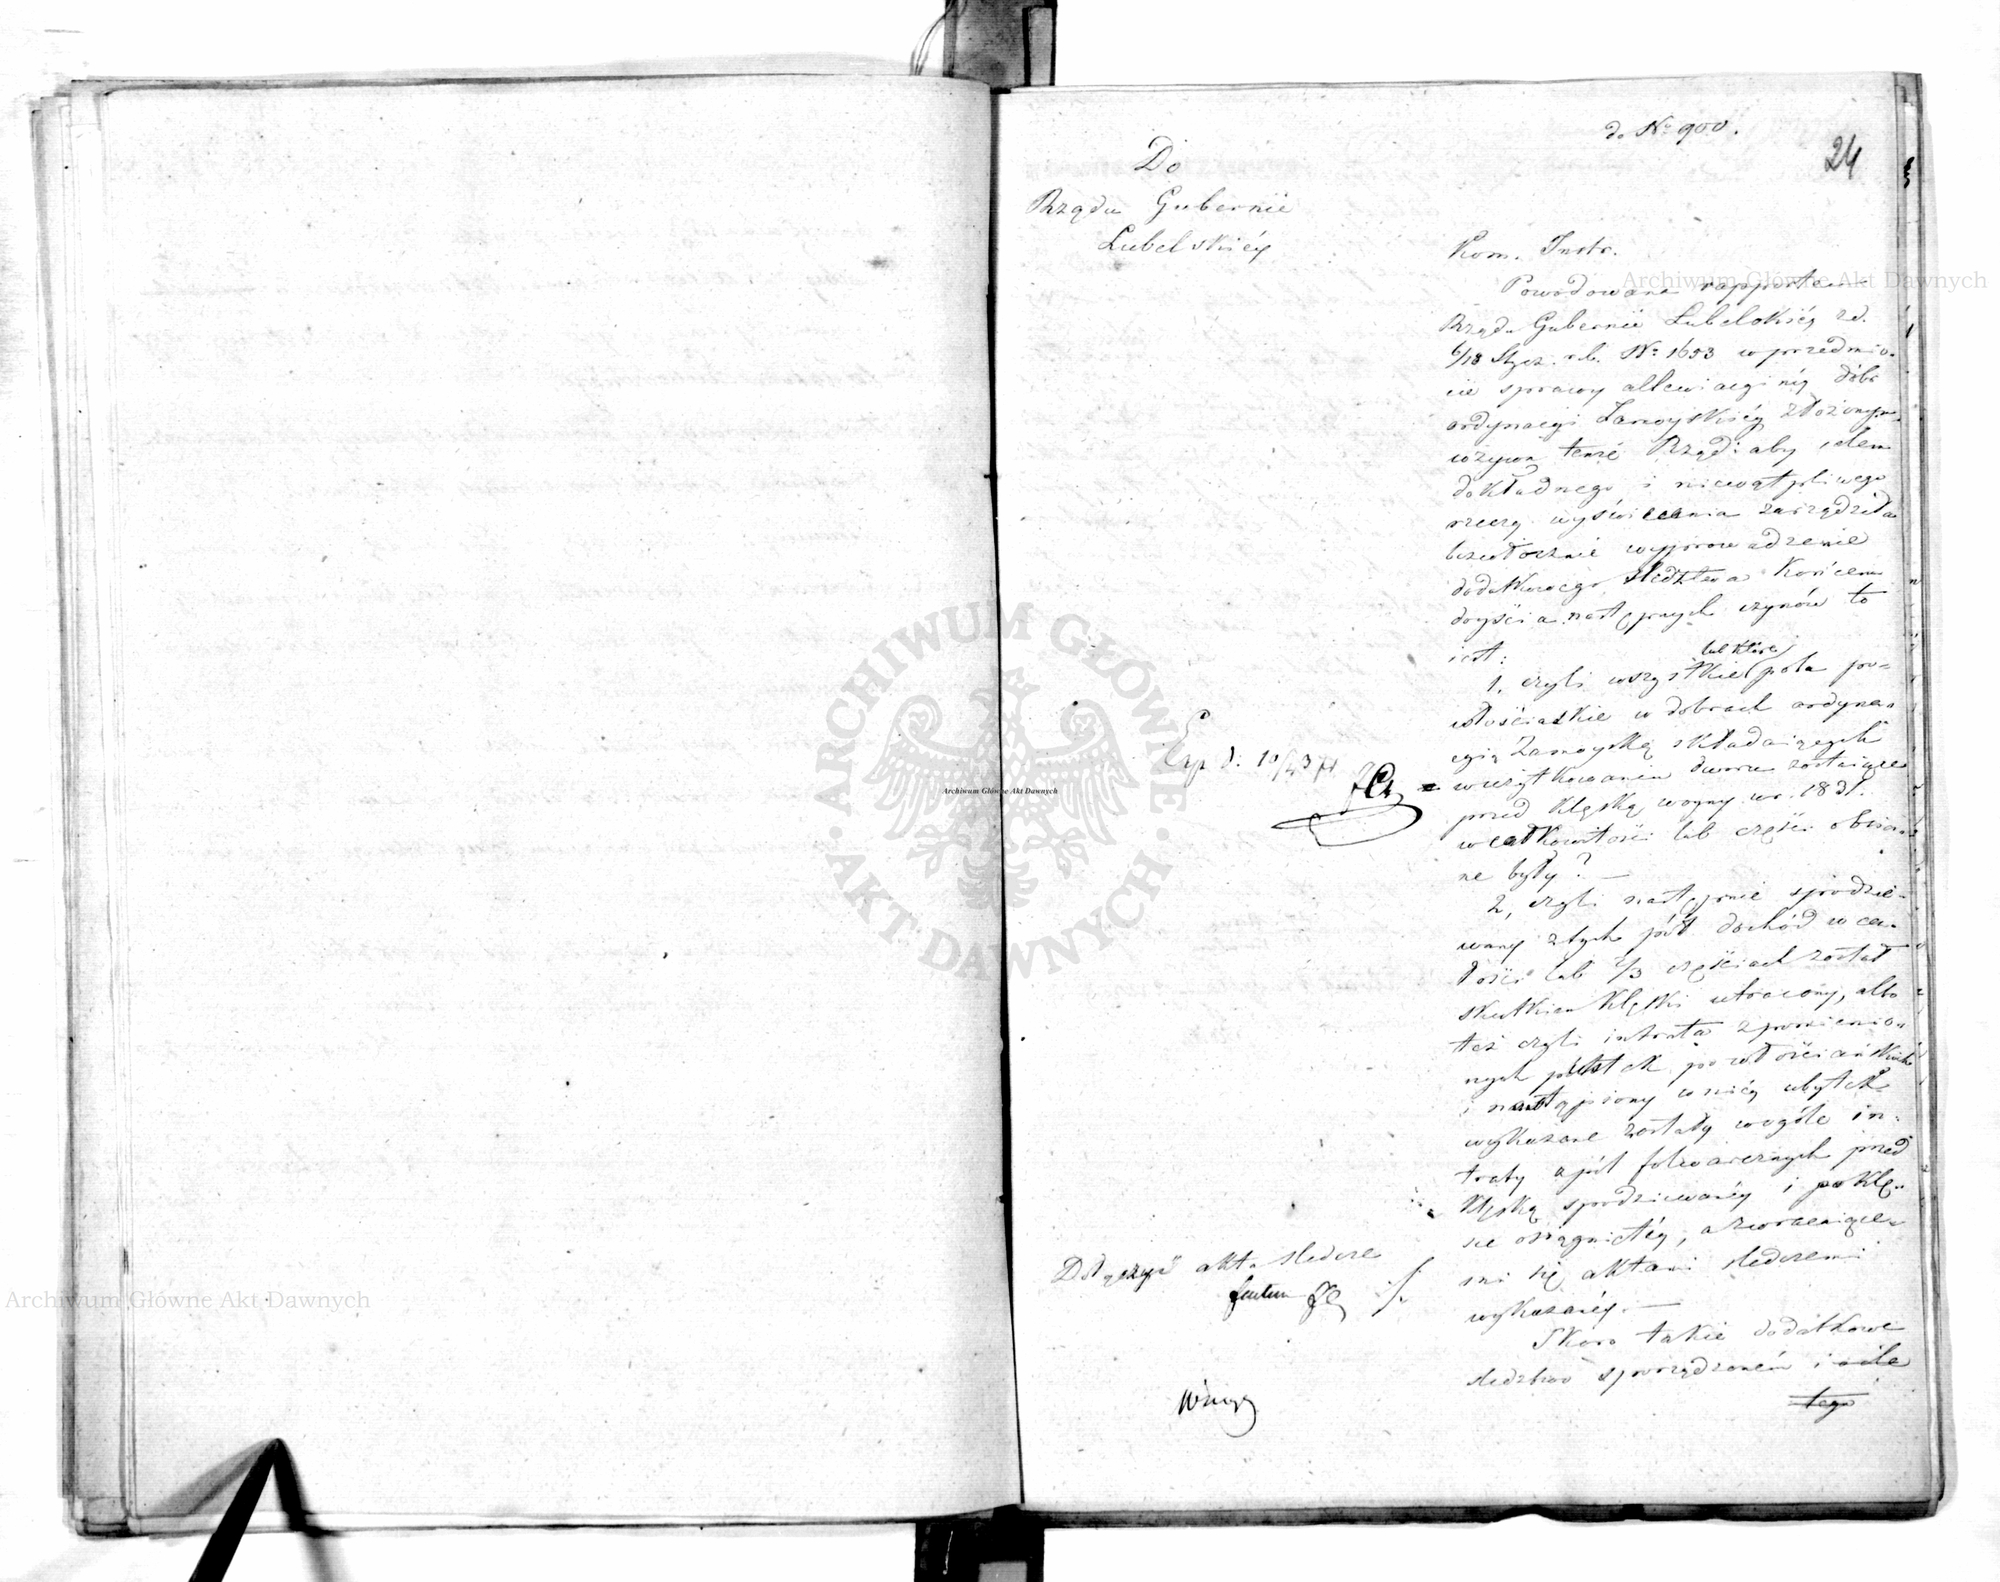 do Nº 900.
24
Do
Rządu Gubernii
Lubelskiéy
Kom. Instr.
Powodowana rapportem
Rządu Gubernii Lubelskiéy z d.
6/18 Stycz. r.b. Nº 1653 w przedmio-
cie sprawy allewiacyinéy dóbr
ordynacyi Zamoyskiéy złożonym,
wzywa tenże Rząd: aby celem
dokładnego i niewątpliwego
rzeczy wyświecenia zarządził
bezwłocznie wyprowadzenie
dodatkowego śledztwa końcem
doyścia następnych czynów to
iest:
1, czyli wszystkie lub które pola po-
włościańskie w dobrach ordyna-
cyią Zamoyską składaiących
w użytkowaniu dworu zostaiące
przed klęską woyny w r. 1831.
w całkowitości lub części obsia-
ne były? —
2, czyli następnie spodzie-
wany z tych pól dochód w ca-
łości lub 2/3 częściach został
skutkiem klęski utracony, albo
też czyli intrata z pomienio-
nych pustek powłościańskich
i nastąpiony w niéy ubytek
wykazane zostały w ogóle in-
traty z pól folwarcznych przed
klęską spodziewanéy i po klę-
sce osiągniętéy, a zwracaiące-
mi się aktami śledczemi
wykazanéy. —
Skoro takie dodatkowe
śledztwo sporządzoném i
tego
Exp d. 10/4 37
Dołączyć akta śledcze
Archiwum Główne Akt Dawnych
Archiwum Główne Akt Dawnych
Archiwum Główne Akt Dawnych
ARCHIWUM GŁÓWNE
AKT DAWNYCH